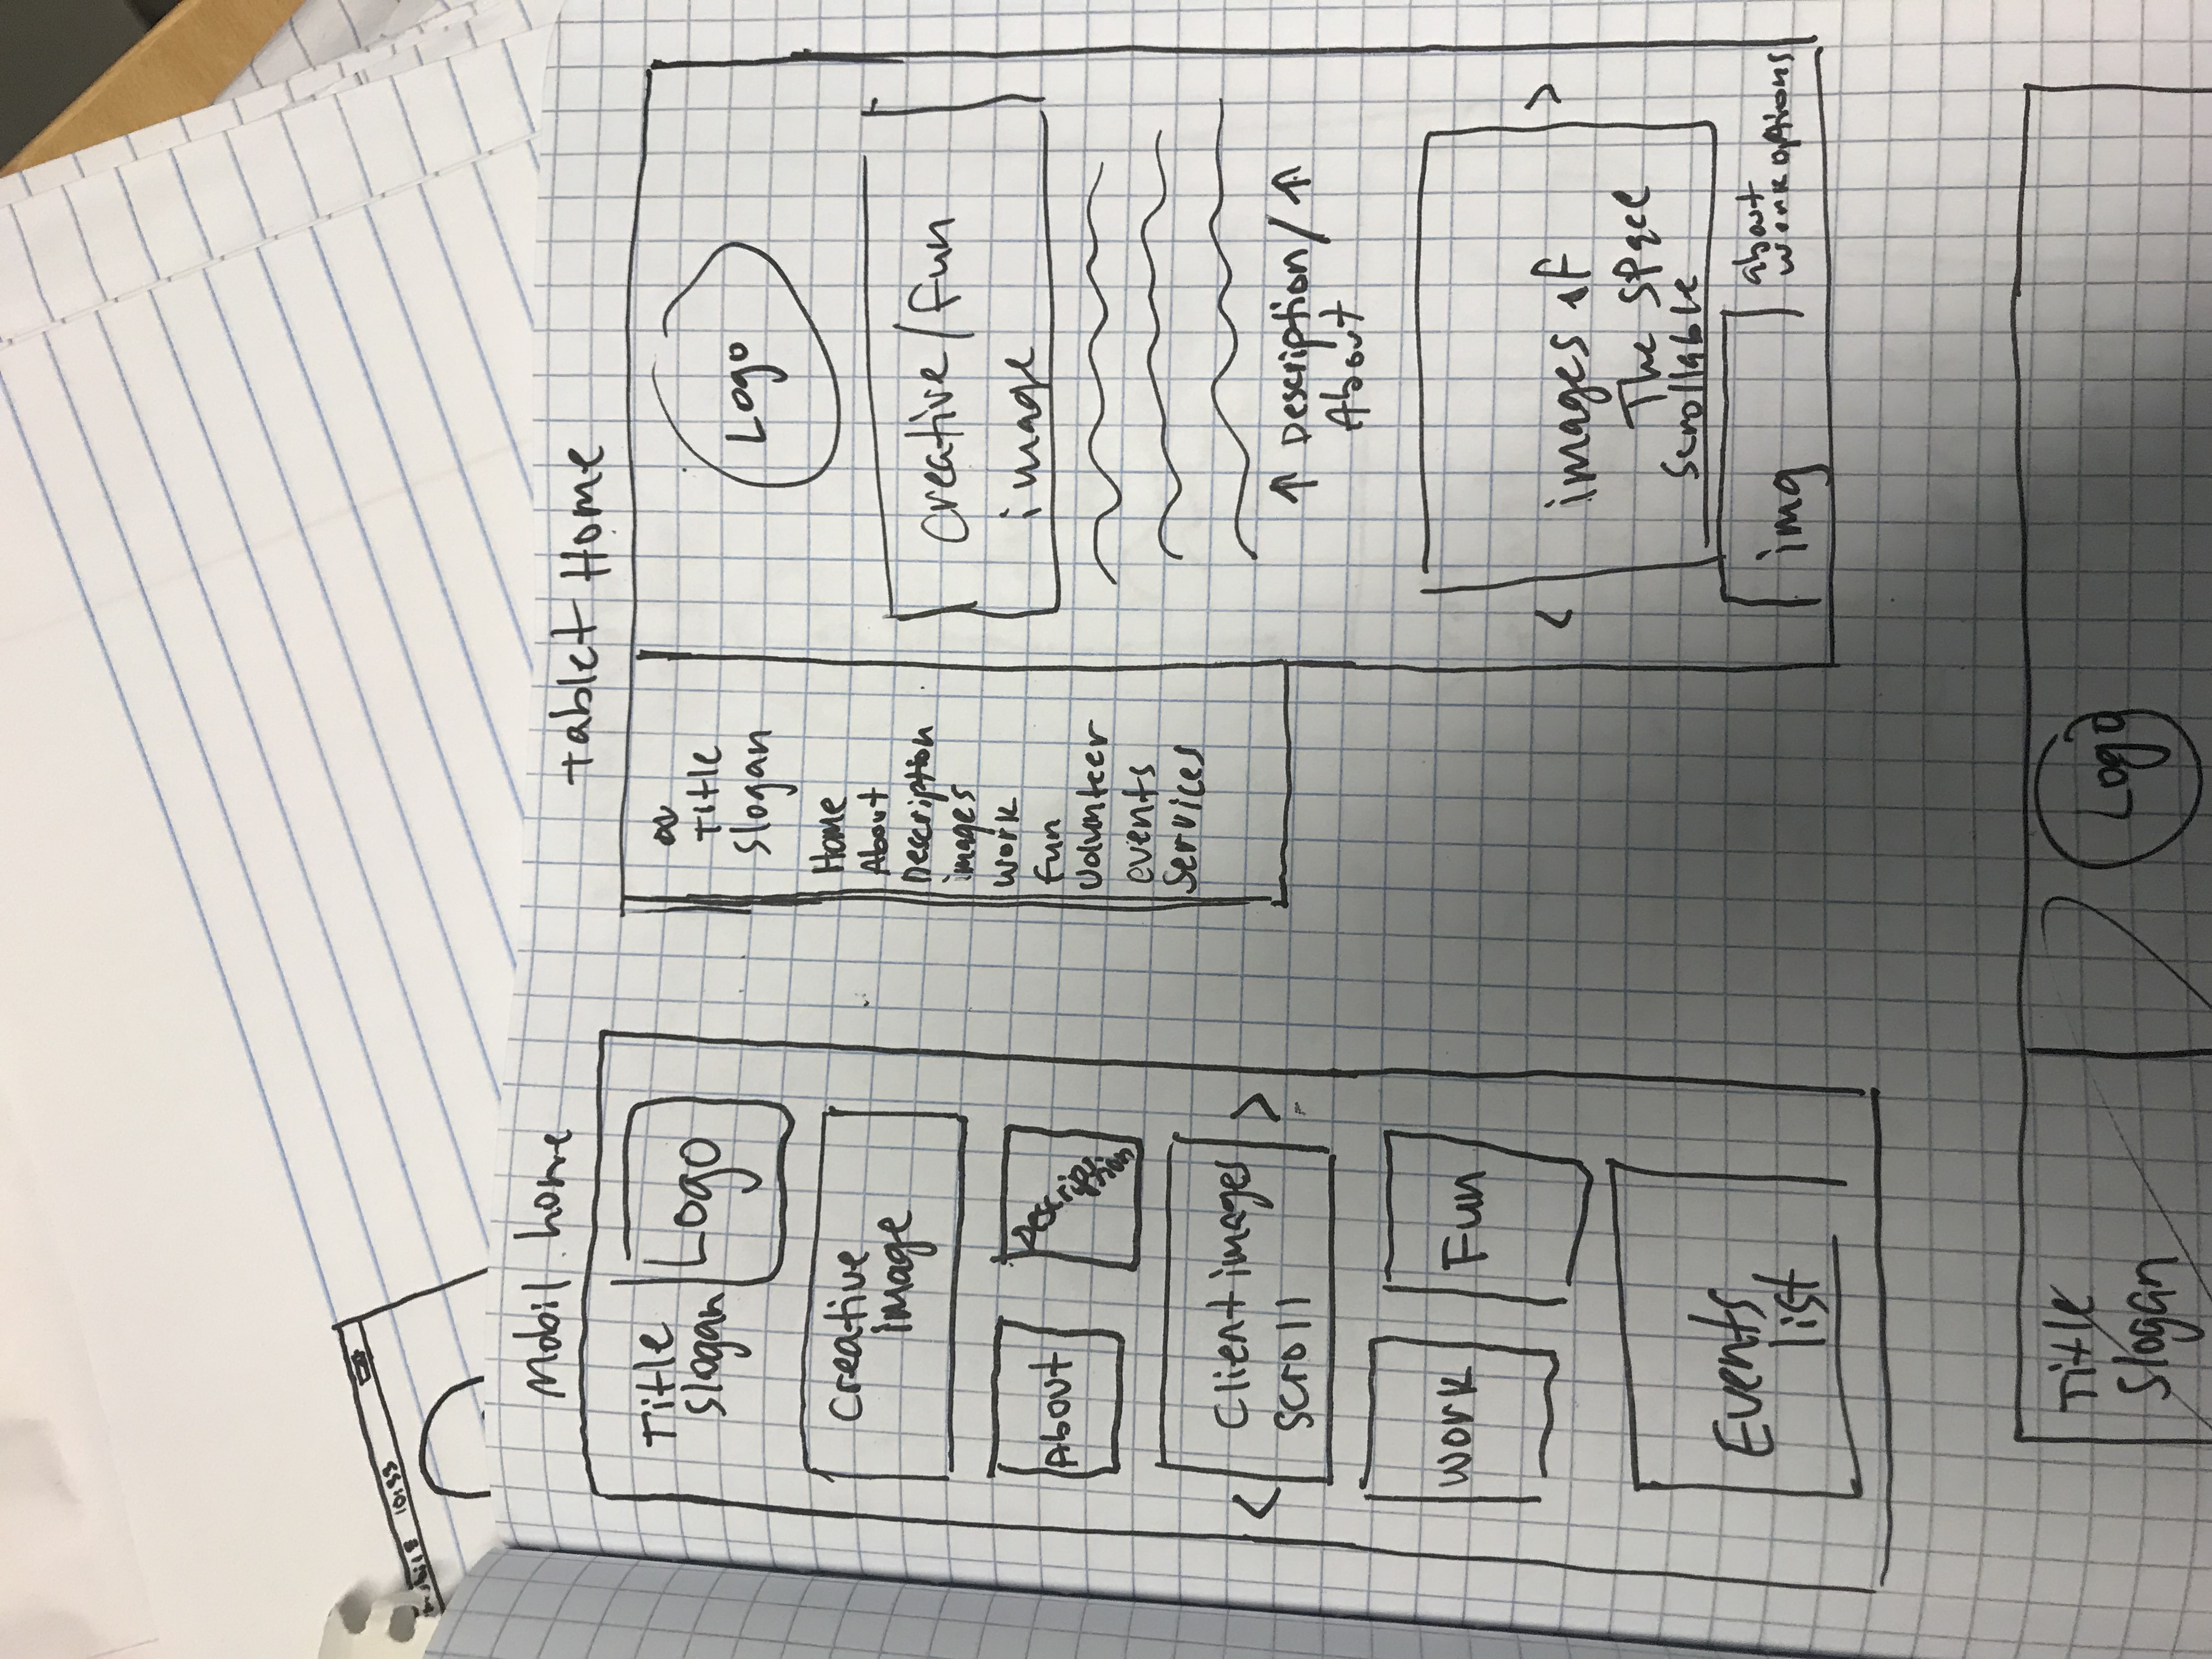 10:33
Mobil home
Title
slogan
Logo
Creative
image
About
Description
<
Client images
scroll
>
work
Fun
Events
list
Tablet Home
Title
Slogan
Home
About
Description
images
work
Fun
Volunteer
events
Services
Logo
Creative/Fun
image
↑ Description/ ↑
About
<
images of
The space
scrollable
>
img
about
work options
Title
Slogan
Logo